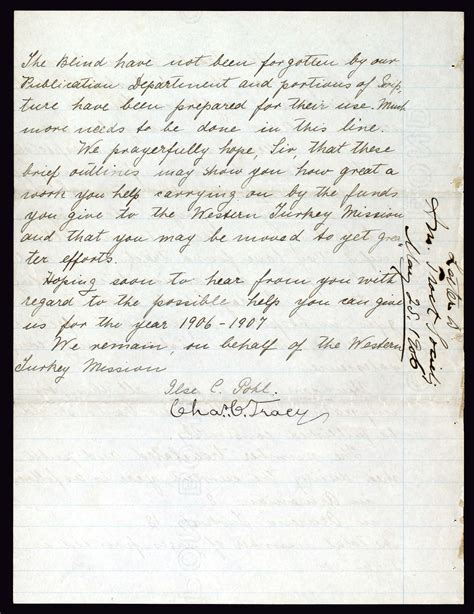 The Blind have not been forgotten by our
Publication Department and portions of Scrip-
ture have been prepared for their use. Much
more needs to be done in this line.
We prayerfully hope, Sir, that these
brief outlines may show you how great a
work you help carrying on by the funds
you give to the Western Turkey Mission
and that you may be moved to yet grea-
ter efforts.
Hoping soon to hear from you with
regard to the possible help you can give
us for the year 1906-1907.
We remain, on behalf of the Western
Turkey Mission
Ilse C. Pohl.
Chas. C. Tracy
Tract Society
May 23 1906